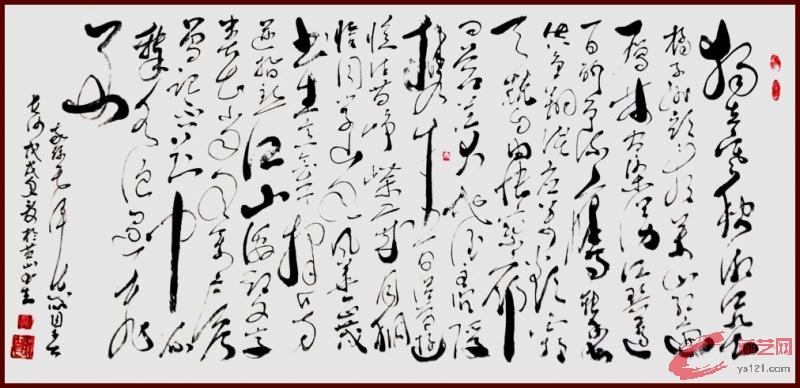 独立寒秋湘江北去
橘子洲头看万山红遍
层林尽染漫江碧透
百舸争流鹰击长空鱼
翔浅底万类霜
天竞自由怅寥廓
问苍茫大地谁主沉浮
携来百侣曾游
忆往昔峥嵘岁月稠
恰同学少年风华正茂
书生意气挥斥方
遒指点江山激扬文字
粪土当年万户侯
曾记否到中流
击水浪遏飞
舟
毛泽东沁园春
长沙戊戌
艺网
ys121.com